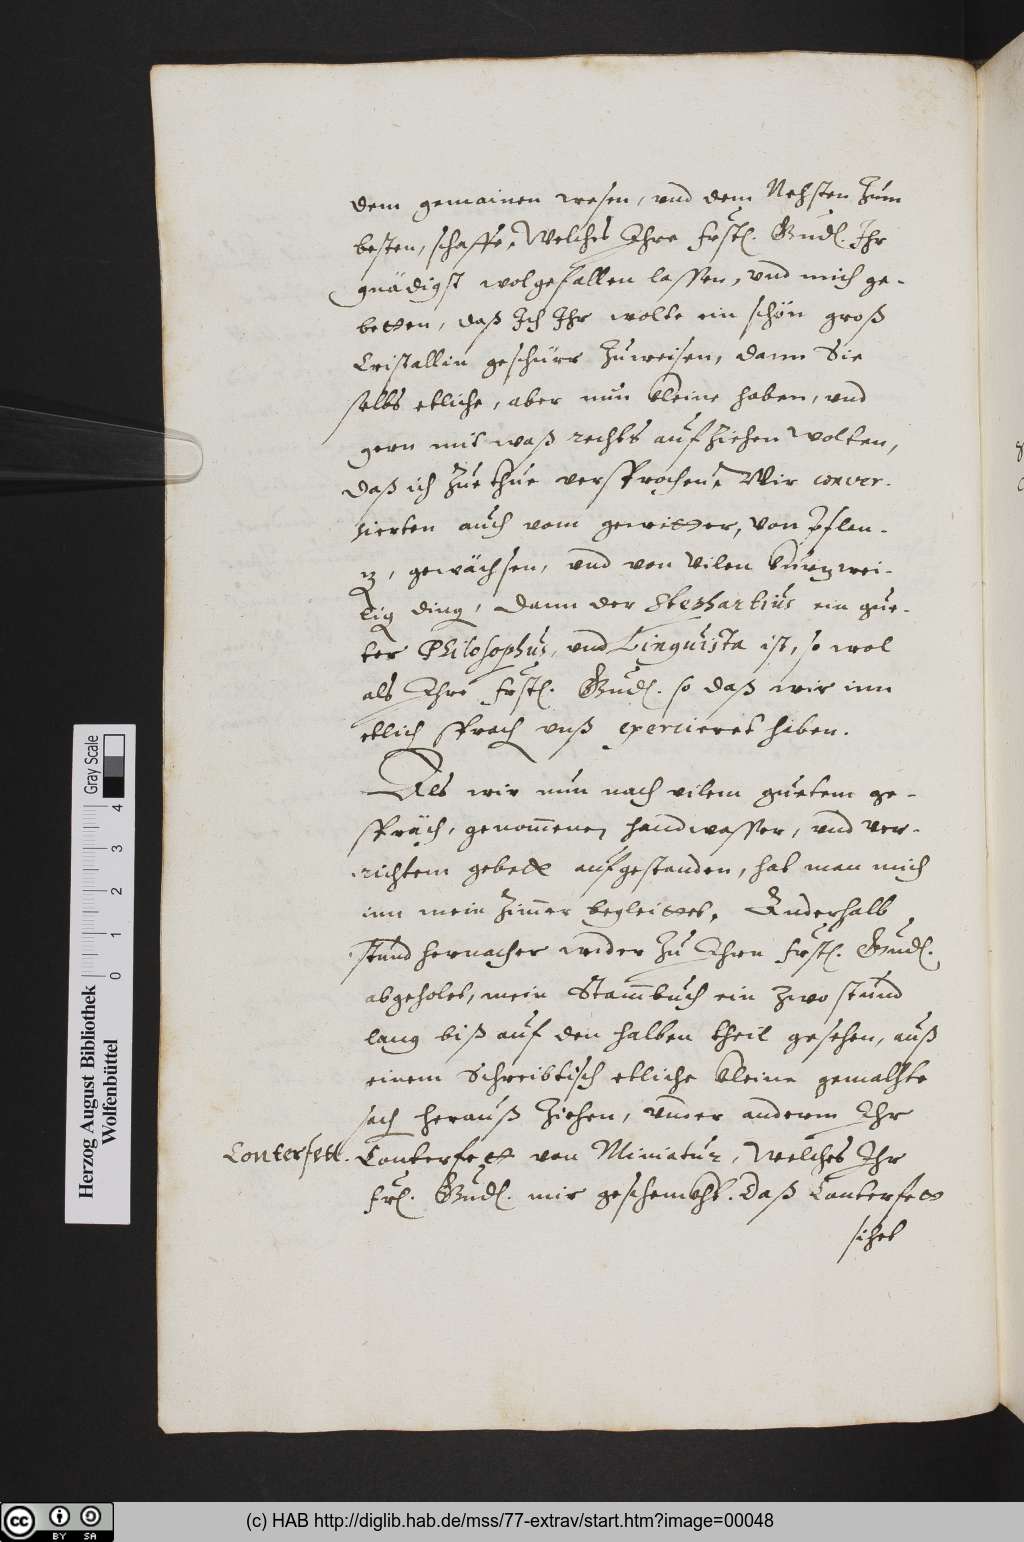 dem gemainen wesen, vnd dem Nehsten zum
besten, schaffe, Welches Ihre frstl. Gndl. Ihr
gnädigst wolgefallen lassen, vnd mich ge-
betten, daß Ich Ihr wolte ein schön groß
Cristallin geschürr zuweisen, dann Sie
selbs etliche, aber nun kleine haben, vnd
gern mit waß rechts aufziehen wolten,
daß ich zue thue versprochen, Wir conver-
sierten auch vom gewitter, von pflan-
z, gewächsen, vnd von vilen kurzwei-
lig ding, dann der Stephartius ein gue-
ter Philosophus, vnd Linguista ist, so wol
als Ihre frstl. Gndl. so daß wir inn
etlich sprach vnß exercieret haben.
Als wir nun nach vilem guetem ge-
spräch, genom̄enen handwasser, vnd ver-
richtem gebett aufgestanden, hat man mich
inn mein zim̄er begleittet, Anderhalb
stund hernacher wider zu Ihrn frstl. Gndl.
abgeholet, mein Stam̄buch ein zwo stund
lang biß auf den halben theil gesehen, auß
einem Schreibtisch etliche kleine gemahlte
sach herauß ziehen, vnder anderm Ihr
Conterfett. Conterfett von Miniatur, Welches Ihr
frl. Gndl. mir geschenckht. Daß Conterfett
sihet
Herzog August Bibliothek
Wolfenbüttel
Gray Scale
0 1 2 3 4
cc BY SA
(c) HAB http://diglib.hab.de/mss/77-extrav/start.htm?image=00048